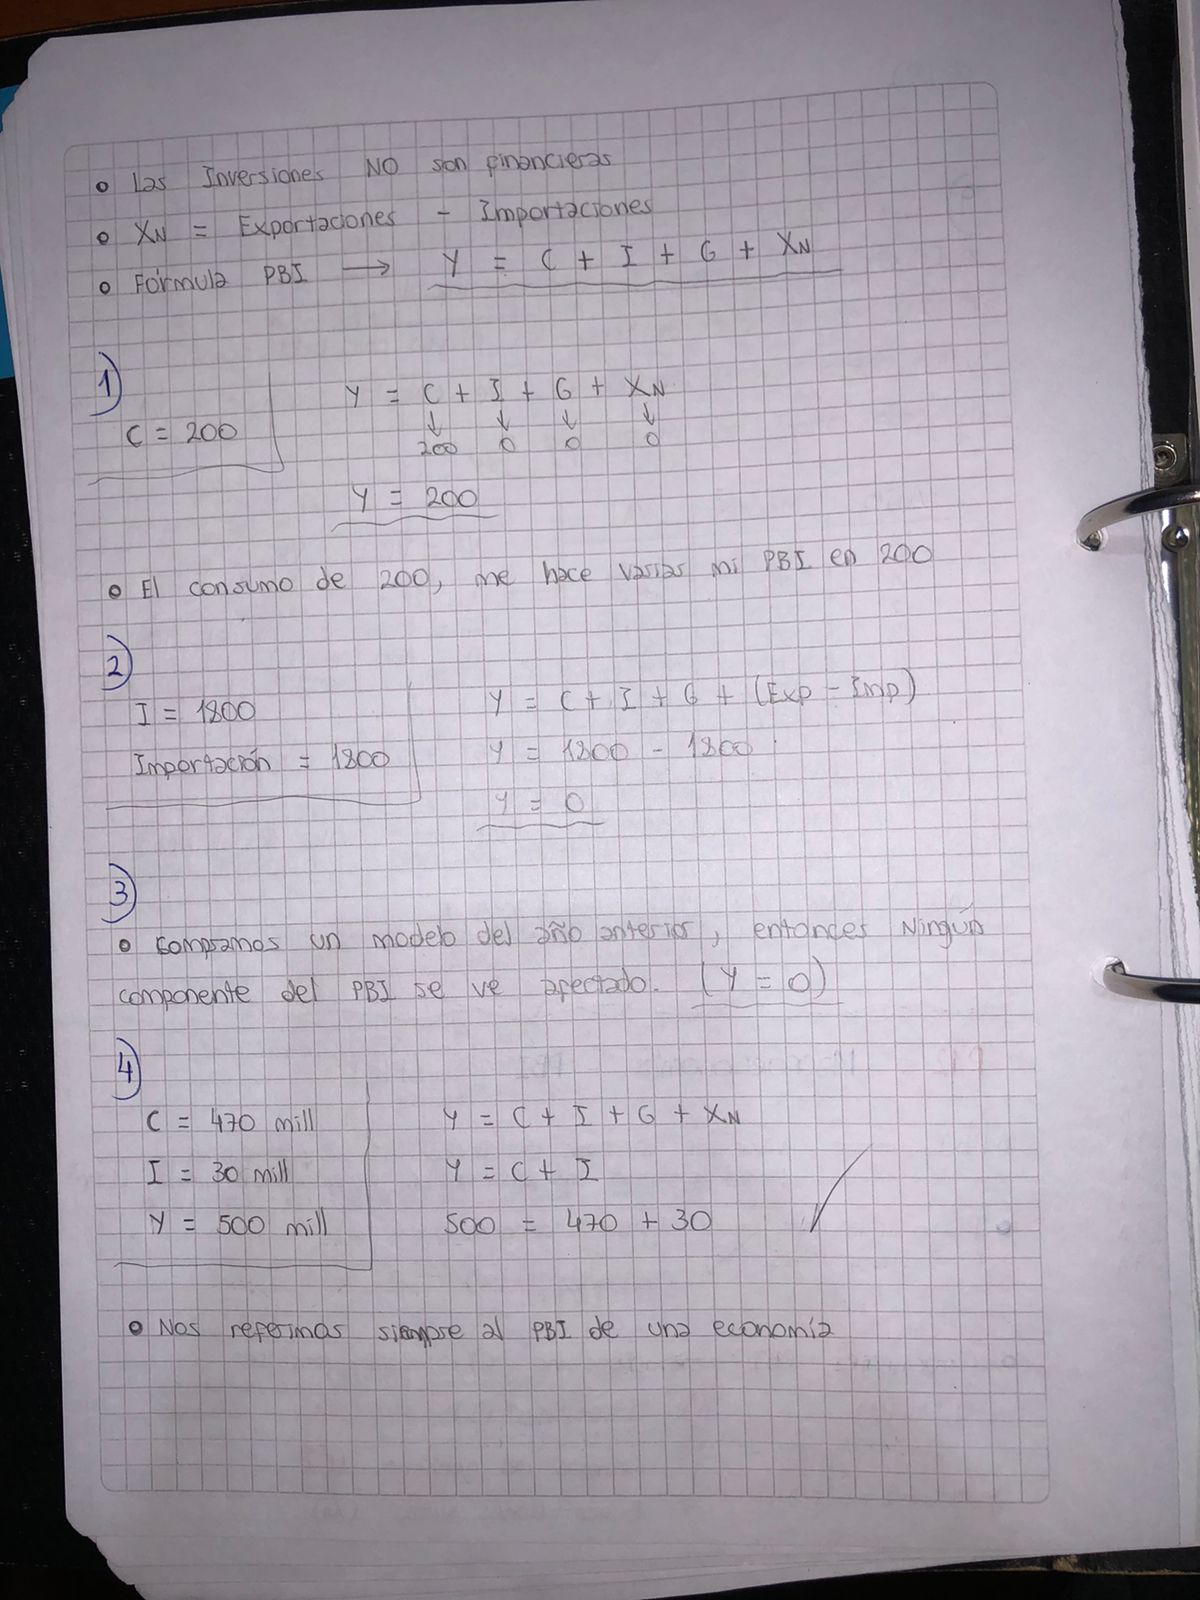 • Las Inversiones NO son financieras
• XN = Exportaciones - Importaciones
• Fórmula PBI → Y = C + I + G + XN
1)
C = 200
Y = C + I + G + XN
↓ ↓ ↓ ↓
200 0 0 0
Y = 200
• El consumo de 200, me hace variar mi PBI en 200
2)
I = 1800
Importación = 1800
Y = C + I + G + (Exp - Imp)
Y = 1800 - 1800
Y = 0
3)
• Compramos un modelo del año anterior, entonces Ningún
componente del PBI se ve afectado. (Y = 0)
4)
C = 470 mill
I = 30 mill
Y = 500 mill
Y = C + I + G + XN
Y = C + I
500 = 470 + 30
• Nos referimos siempre al PBI de una economía